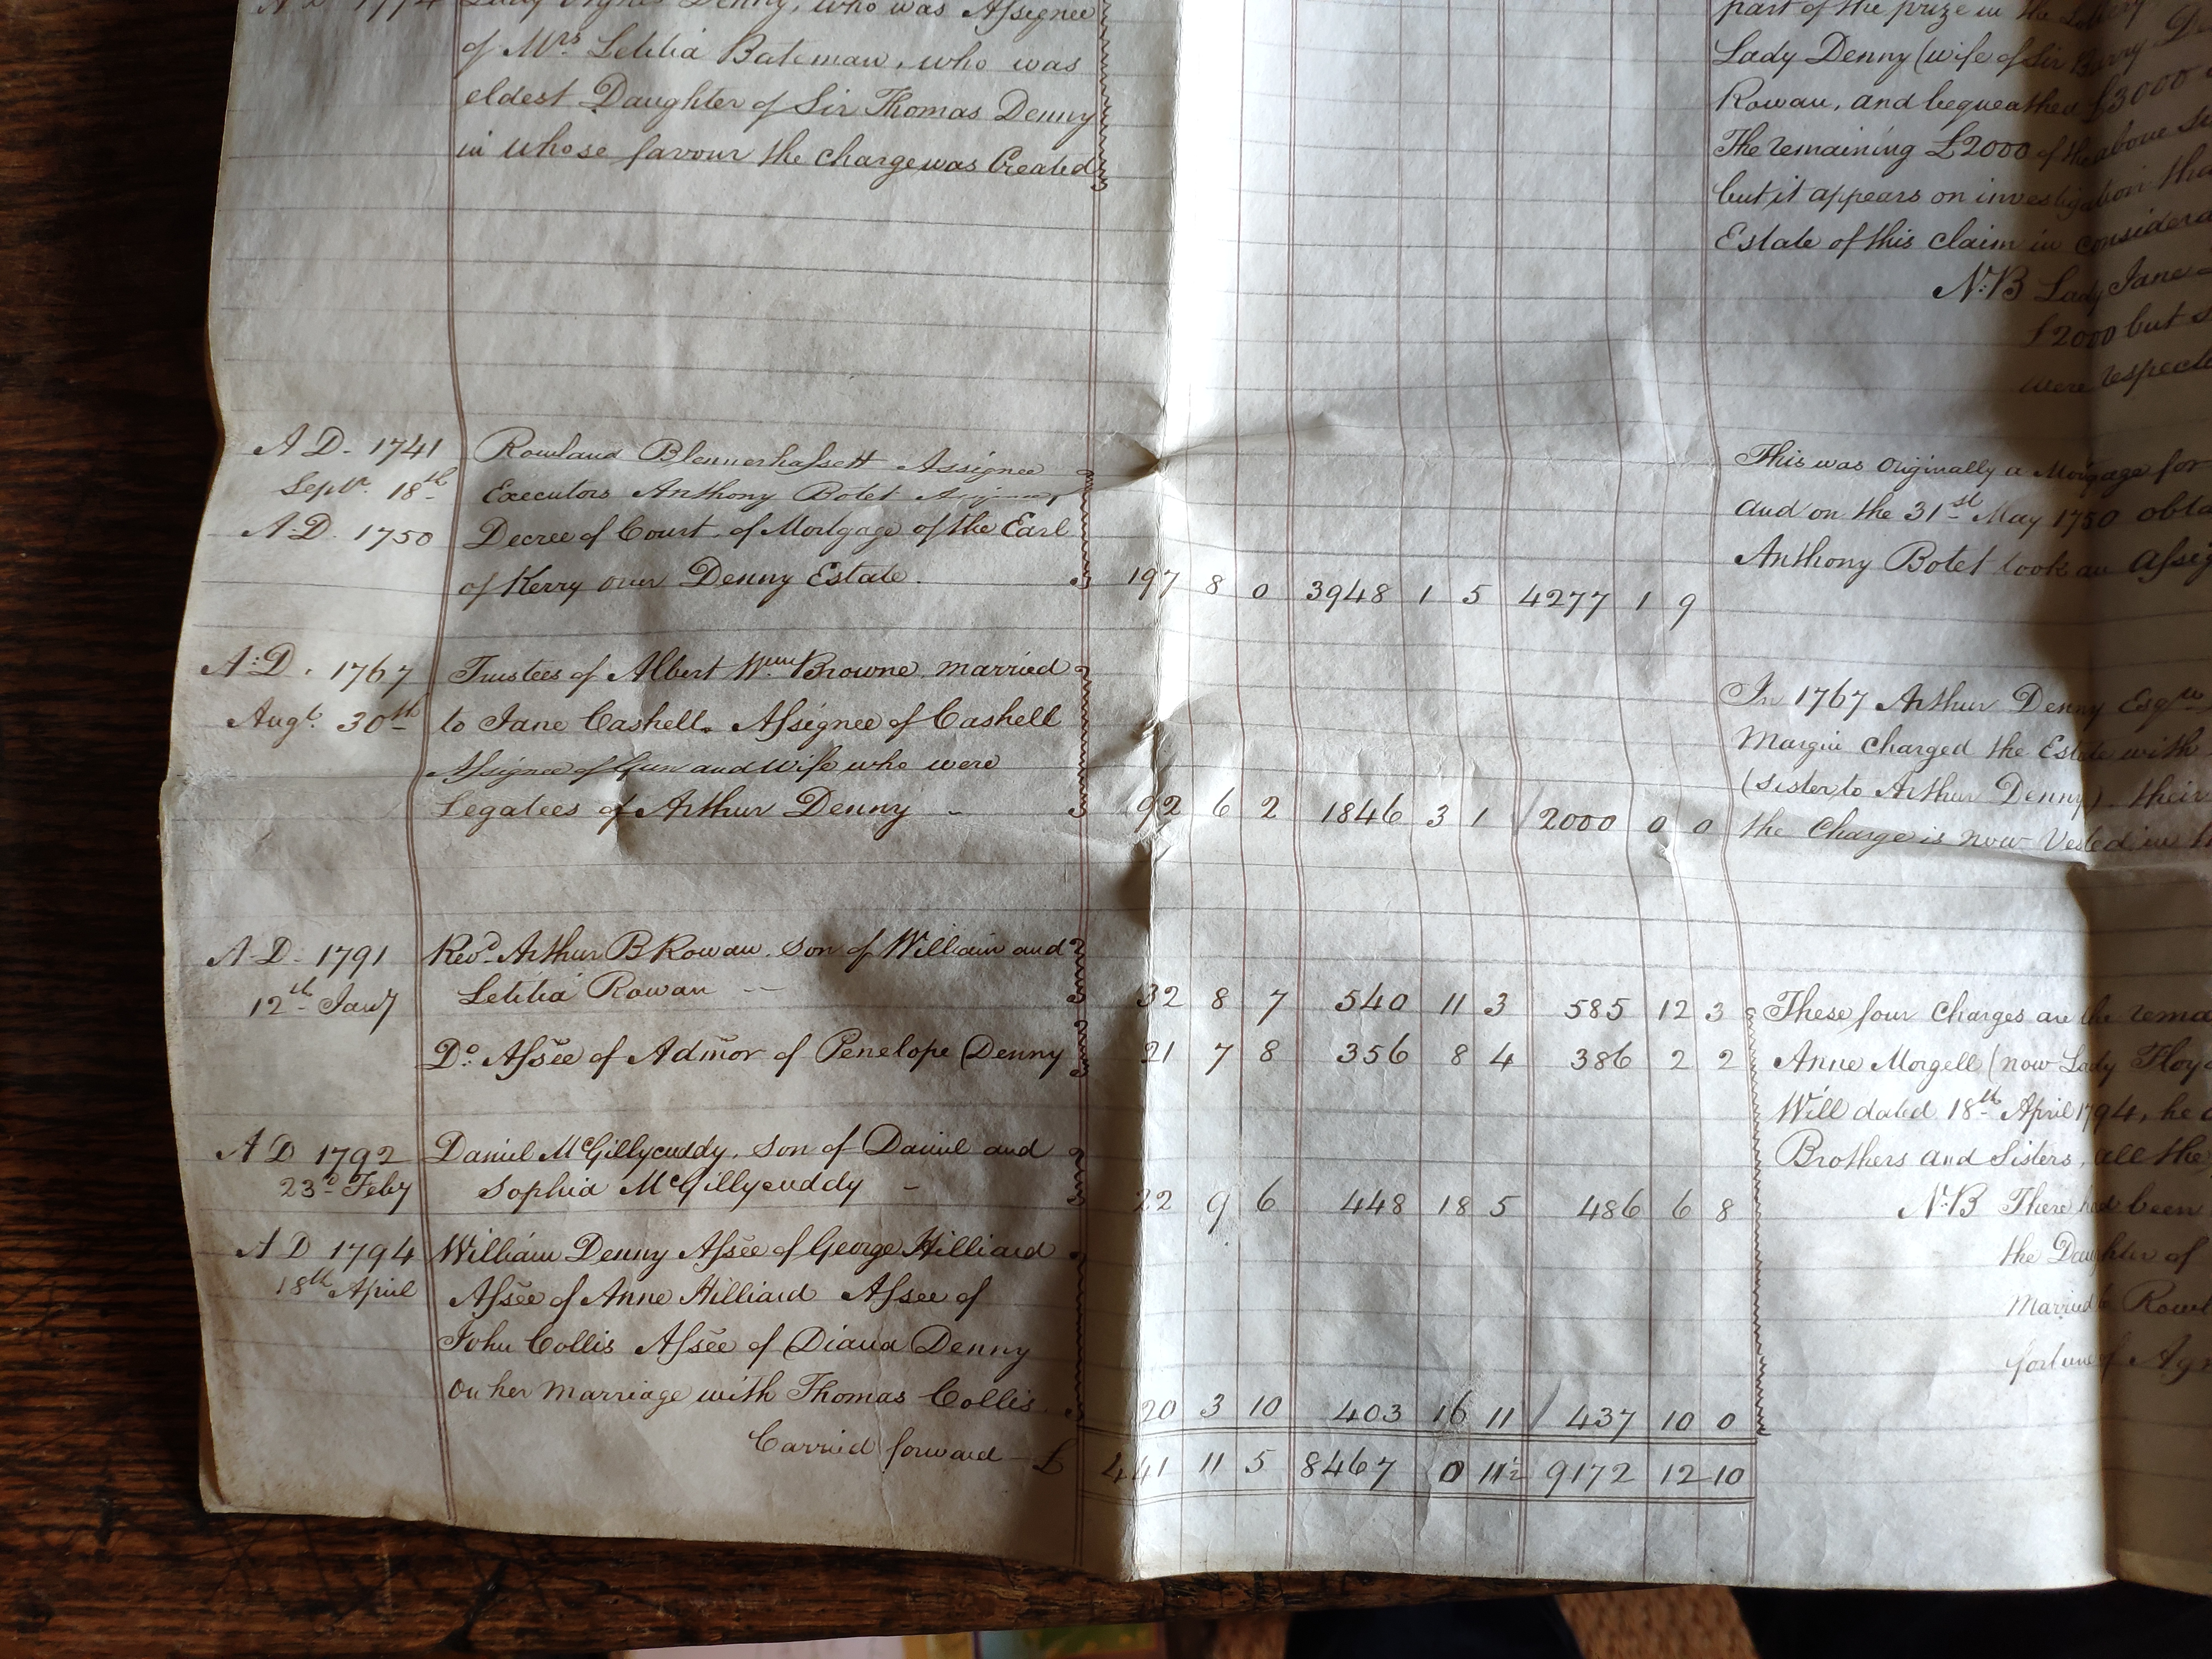 A D 1774 Lady Agnes Denny, who was Assignee
of Mrs Letitia Bateman, who was
eldest Daughter of Sir Thomas Denny
in whose favour the charge was Created
part of the prize in the Lottery
Lady Denny (wife of Sir Barry D
Rowan, and bequeathed £3000
The remaining £2000 of the above
but it appears on investigation tha
Estate of this claim in considera
N:B Lady Jane
£2000 but
were respecti
A D. 1741 Rowland Blennerhassett Assignee
Septr. 18th Executors Anthony Botet
A D. 1750 Decree of Court, of Mortgage of the Earl
of Kerry over Denny Estate. 197 8 0 3948 1 5 4277 1 9
This was Originally a Mortgage for
and on the 31st May 1750 obta
Anthony Botet took an Assig
A:D. 1767 Trustees of Albert Wm Browne, married
Augt. 30th to Jane Cashell. Assignee of Cashell
Assignee of Gun and Wife who were
Legatees of Arthur Denny - 92 6 2 1846 3 1 / 2000 0 0
In 1767 Arthur Denny Esqre
Margin Charged the Estate with
(Sister to Arthur Denny). their
the Charge is now Vested in
A D. 1791 Revd. Arthur B Rowan. Son of William and
12th Jany Letitia Rowan -- 32 8 7 540 11 3 585 12 3
Do. Assee of Admor of Penelope Denny 21 7 8 356 8 4 386 2 2
A D 1792 Daniel McGillycuddy, Son of Daniel and
23d Feby Sophia McGillycuddy - 22 9 6 448 18 5 486 6 8
A D 1794 William Denny Assee of George Hilliard
18th April Assee of Anne Hilliard Assee of
John Collis Assee of Diana Denny
On her marriage with Thomas Collis. 20 3 10 403 16 11 / 437 10 0
Carried forward - £ 441 11 5 8467 0 11½ 9172 12 10
These four Charges are the rema
Anne Morgell (now Lady Floyd
Will dated 18th April 1794, he
Brothers and Sisters, all the
N:B There had been
the Daughter of
Married to Rowl
fortune of Agn